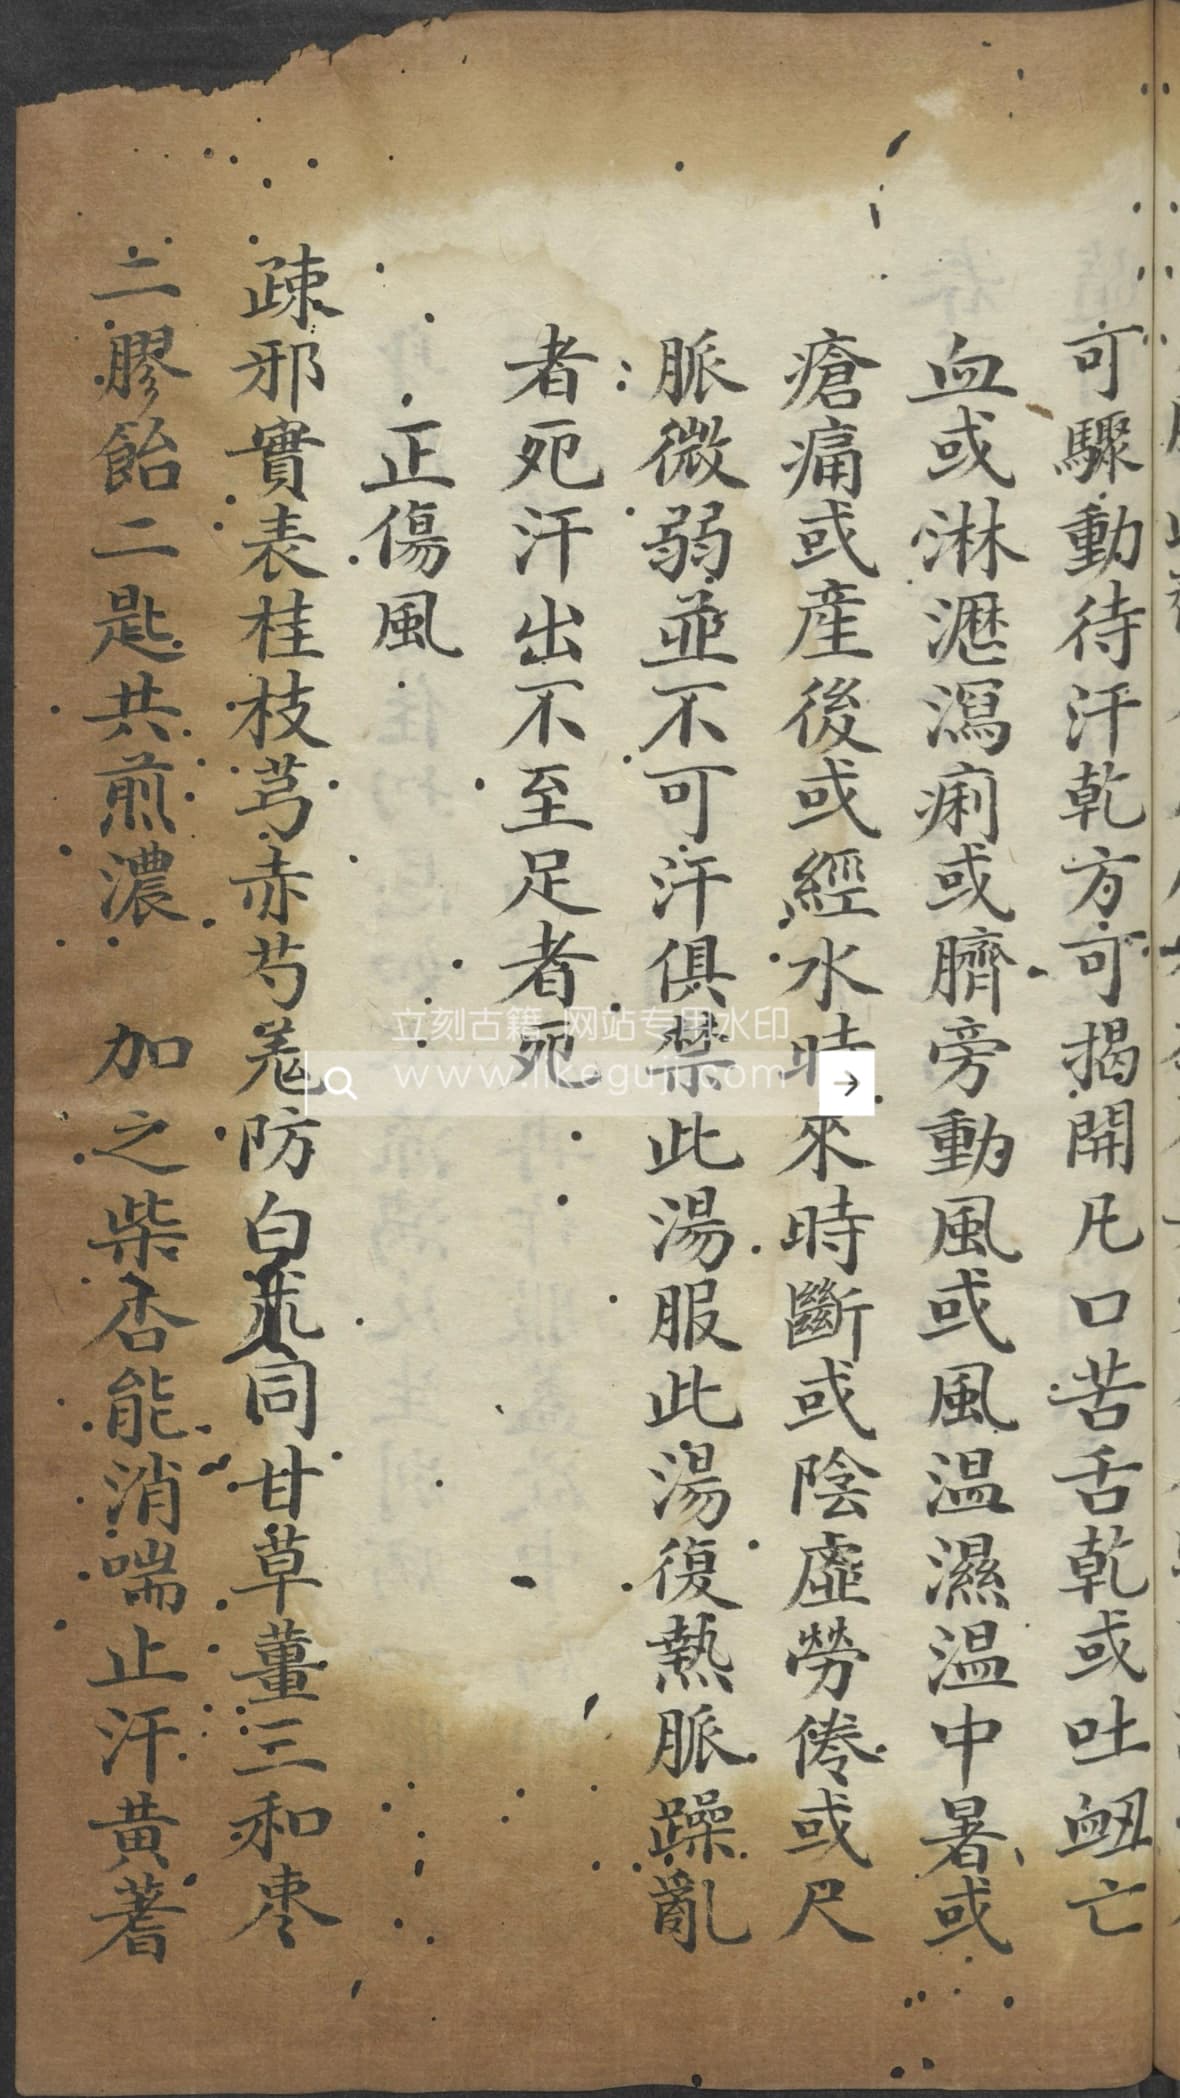 可驟動待汗乾方可揭開凡口苦舌乾或吐衄亡
血或淋瀝瀉痢或臍旁動風或風温濕温中暑或
瘡痛或産後或經水時來時斷或陰虛勞倦或尺
脈微弱並不可汗俱禁此湯服此湯復熱脈躁亂
者死汗出不至足者死
正傷風
疎邪實表桂枝芎赤芍羗防白朮同甘草薑三和枣
二膠飴二匙共煎濃 加之柴杏能消喘止汗黄蓍
立刻古籍 网站专用水印
www.likeguji.com